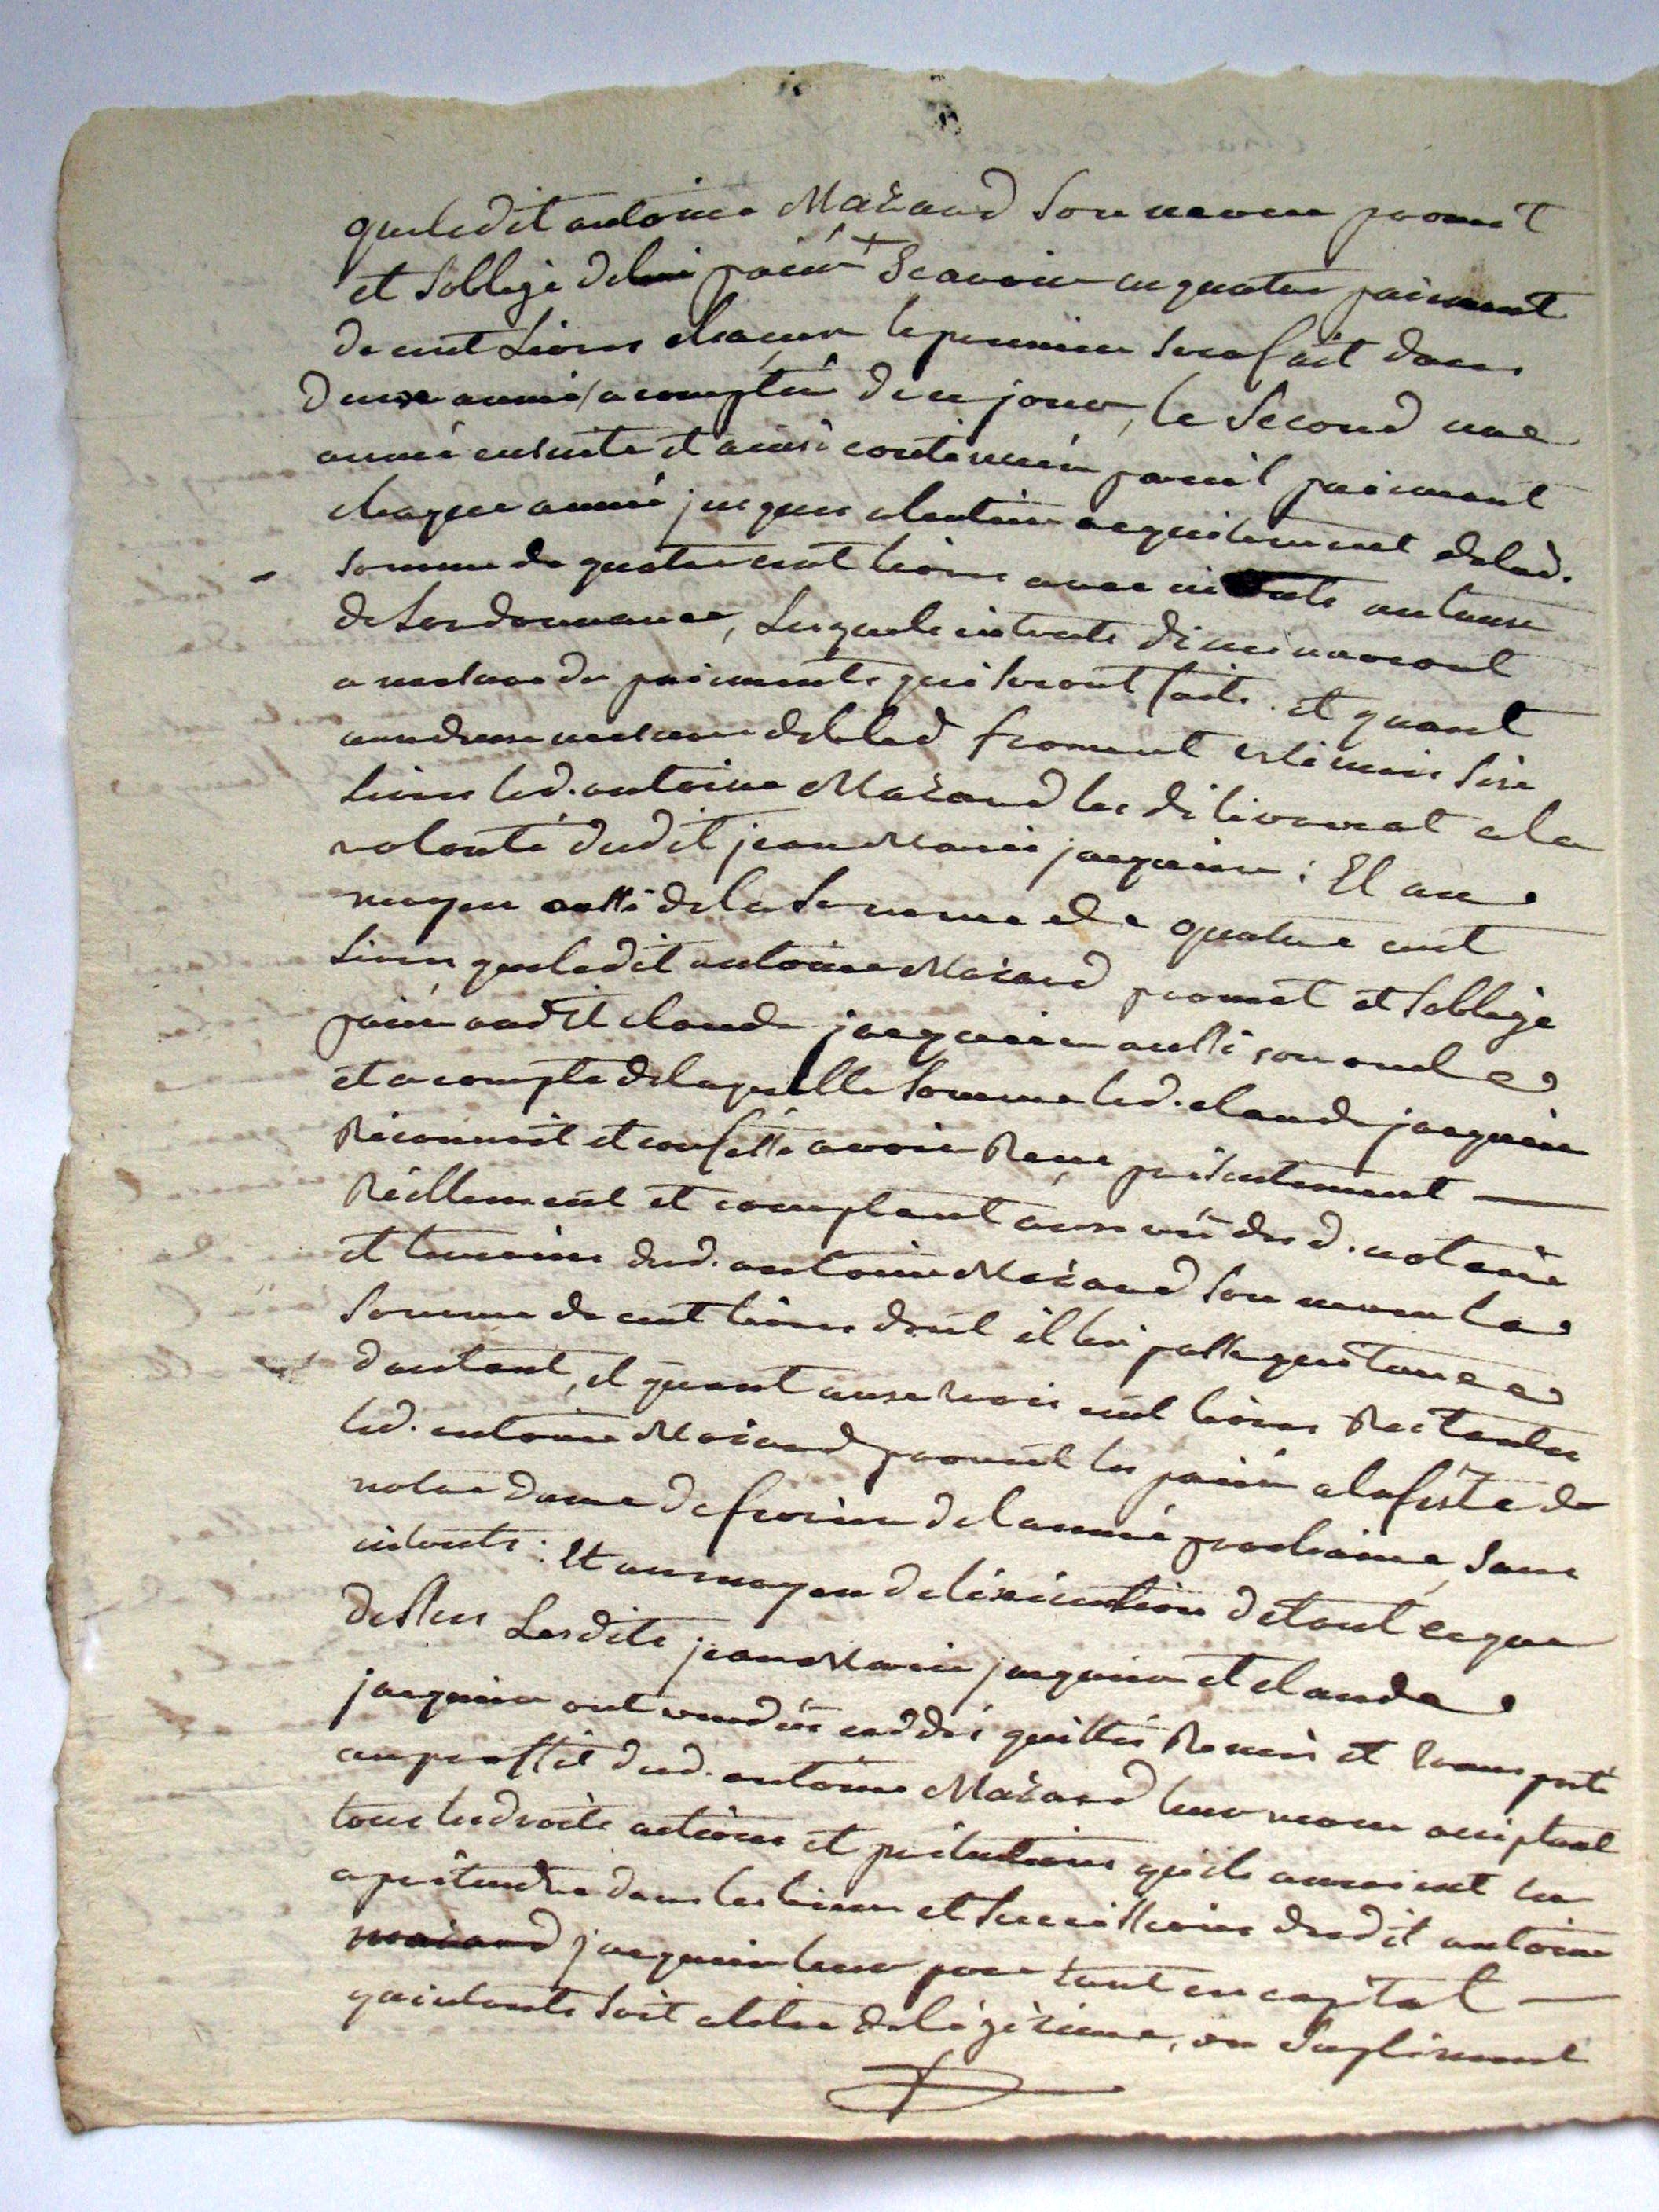 queledit antoine Mazaud son neveu promet
et soblige de lui paier + scavoir en quatre paiement
de cent Livres chacun le premier sera fait dans
deux année a compter de ce jour, le second une
année ensuite et ainsi continuer pareil paiement
chaque année jusques alentier acquitement delad.
somme de quatre cent livres avec interets au taux
de Lordonnance, Lesquels interets diminueront
a mesure des paiements qui seront faits. et quant
aux deux mesures debled froment estimées sixe
Livres led. antoine Mazaud les delivrerat a la
volonté dudit jean Marie jacquin : Et au
moyen aussi dela somme de quatre cent
Livres queledit antoine Mazaud promet et soblige
paier audit claude jacquin aussi son oncle
et a compte delaquelle somme led. claude jacquin
Reconnoit et confesse avoir Reçu présentement —
Réellement et comptant aux vû dud. notaire
et temoins dud. antoine Mazaud son neveu la
somme de cent livres dont il lui passe quitance
dautant, et quant aux trois cent livres Restantes
led. antoine Mazaud promet les paier alafeste de
notre dame de fevrier de lannée prochaine, sans
interets : Et aumoyen de léxécution detout ceque
dessus Lesdits jean Marie jacquin et claude
jacquin ont vendus ceddés quittés Remis et transporté
au proffit dud. antoine Mazaud leur neveu acceptant
tous les droits actions et prétentions quils auroient eu
a prétendre dans les biens et succession dudit antoine
mazaud jacquin leur pere tant en capital —
quinterets soit atitre delégitime, ou suplément